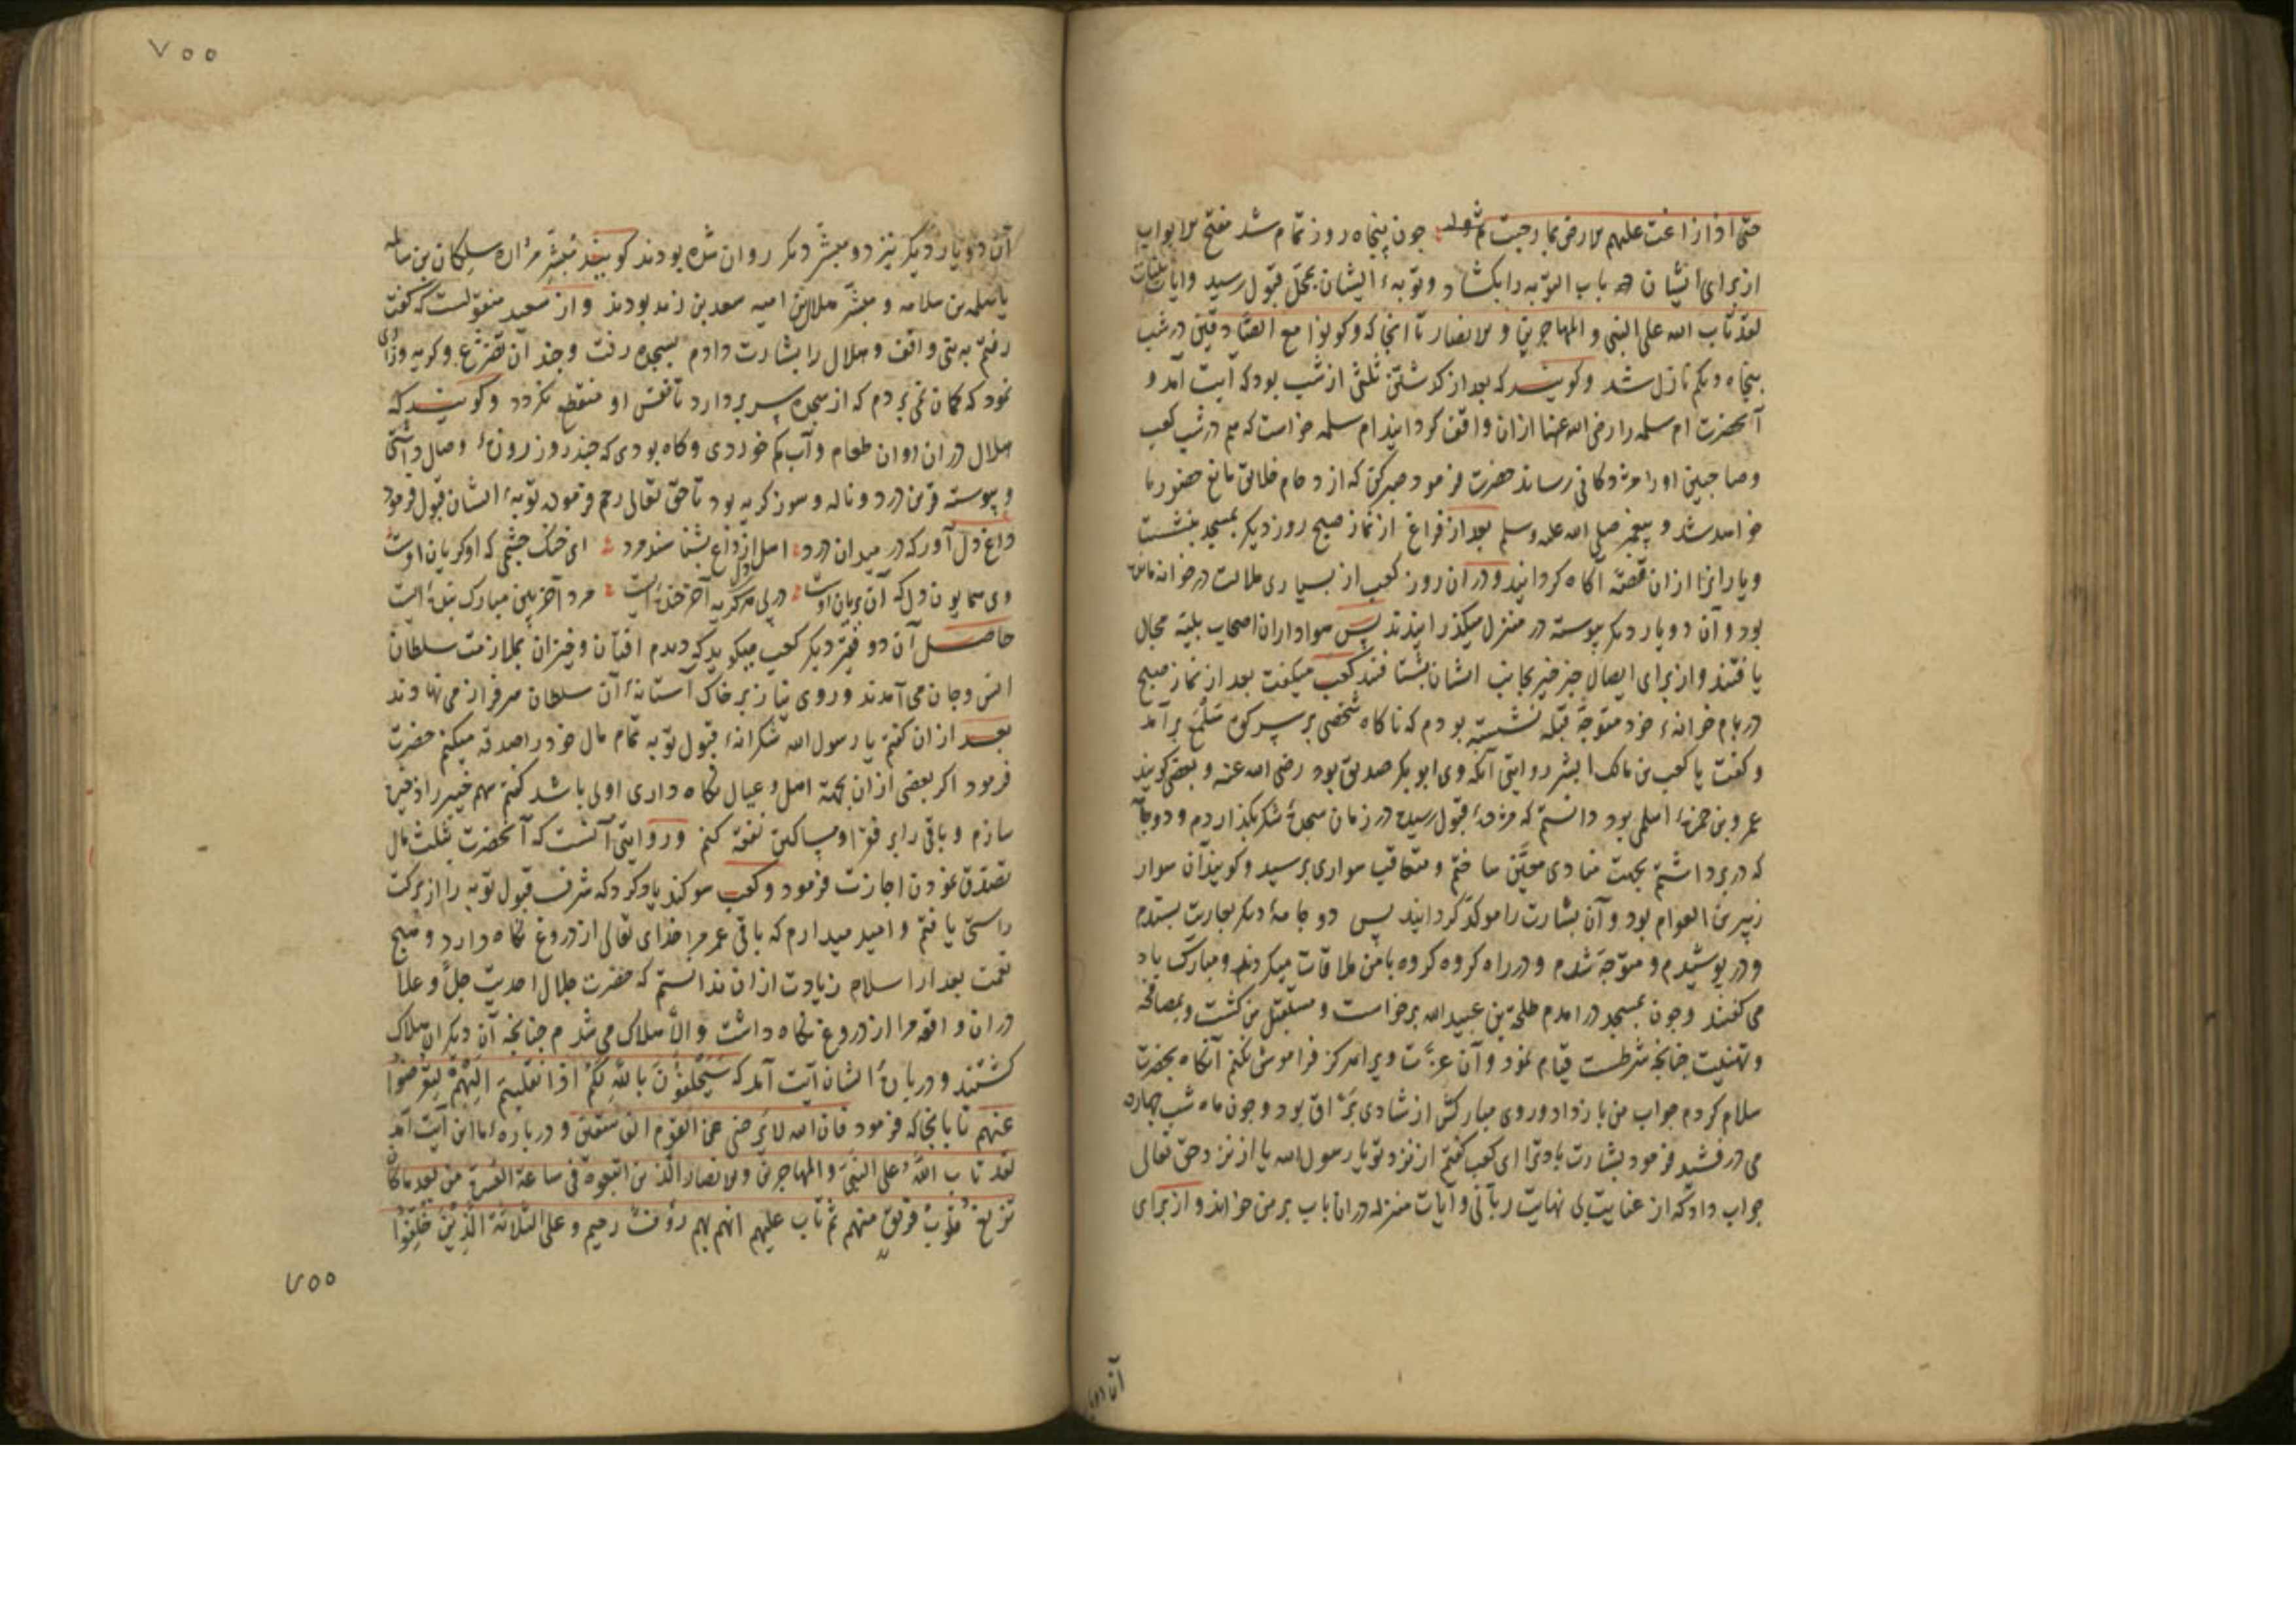 حتی اذا ضاقت علیهم الارض بما رحبت چون پنجاه روز تمام شد مفتح الابواب
از برای ایشان در باب التوبه را بکشاد و توبهٔ ایشان بمحل قبول رسید وایات بینات
لقد تاب الله علی النبی و المهاجرین و الانصار تا انجا که وکونوا مع الصادقین در شب
پنجاه ویکم نازل شد وکویند که بعد از کذشتن ثلثی از شب بود که آیت آمد و
آنحضرت ام سلمه را رضی الله عنها ازان واقف کردانید ام سلمه خواست که هم در شب کعب
وصاحبین او را مژدکانی رساند حضرت فرمود صبر کن که ازدحام خلایق مانع حضور ما
خواهد شد و پیغمبر صلی الله علیه وسلم بعد از فراغ از نماز صبح روز دیکر بمسجد بنشست
ویارانرا ازان قصه آکاه کردانید ودران روز کعب از بسیاری ملالت در خانه مانده
بود وآن دو یار دیکر پیوسته در منزل میکذرانیدند پس هواداران اصحاب بلیه مجال
یافتند و از برای ایصال خبر خیر بجانب ایشان بشتافتند کعب میکفت بعد از نماز صبح
در بام خانهٔ خود متوجه قبله نشسته بودم که ناکاه شخصی بر سر کوه سلع برآمد
وکفت یا کعب بن مالک ابشر روایتی آنکه وی ابو بکر صدیق بود رضی الله عنه و بعضی کویند
عمرو بن حمزهٔ اسلمی بود دانستم که مژدهٔ قبول رسیده در زمان سجدهٔ شکر بکذاردم و دو جامه
که در بر داشتم بجهت منادی معین ساختم و متعاقب سواری برسید وکویند آن سوار
زبیر بن العوام بود وآن بشارت را موکد کردانید پس دو جامهٔ دیکر بعاریت بستدم
ودر پوشیدم و متوجه شدم و در راه کروه کروه با من ملاقات میکردند و مبارک باد
می کفتند وچون بمسجد درامدم طلحة بن عبید الله برخاست و مستقبل من کشت و بمصافحه
وتهنیت چنانچه شرطست قیام نمود وآن عزت ویرا هرکز فراموش نکنم آنکاه بحضرت
سلام کردم جواب من باز داد و روی مبارکش از شادی براق بود وچون ماه شب چهارده
می درفشید فرمود بشارت باد ترا ای کعب کفتم از نزد تو یا رسول الله یا از نزد حق تعالی
جواب داد که از عنایت بی نهایت ربانی و آیات منزله دران باب بر من خواند و از برای
آن دو یار
۷۵۵
آن دو یار دیکر نیز دو مبشر دیکر روان شده بودند کویند مبشر مراره سلکان بن سلامه
یا سلمه بن سلامه و مبشر هلال بن امیه سعد بن زید بودند و از سعید منقولست که کفت
رفتم به بنی واقف و هلال را بشارت دادم بسجده رفت و چند آن تضرع وکریه وزاری
نمود که کمان نمی بردم که از سجده سر بردارد تا نفس او منقطع نکردد وکویند که
هلال دران اوان طعام وآب کم خوردی وکاه بودی که چند روز روزهٔ وصال داشتی
و پیوسته قرین درد و ناله و سوز کریه بود تا حق تعالی رحم فرموده توبهٔ ایشان قبول فرمود
داغ دل آور که در میدان درد اهل دل از داغ بشناسند مرد ای خنک چشمی که او کریان اوست
وی همایون دل که آن بریان اوست در پی هر کریه آخر خنده ایست مرد آخر بین مبارک بنده ایست
حاصل آن دو فقیر دیکر کعب میکوید که دیدم افتان و خیزان بملازمت سلطان
انس وجان می آمدند و روی نیاز بر خاک آستانهٔ آن سلطان سرفراز می نهادند
بعد ازان کفتم یا رسول الله شکرانهٔ قبول توبه تمام مال خود را صدقه میکنم حضرت
فرمود اکر بعضی ازان بجهة اهل و عیال نکاه داری اولی باشد کفتم سهم خیبر را ذخیره
سازم و باقی را بر فقرا و مساکین نفقه کنم وروایتی آنست که آنحضرت بثلث مال
تصدق نمودن اجازت فرمود وکعب سوکند یاد کرد که شرف قبول توبه را از برکت
راستی یافتم و امید میدارم که باقی عمر مرا خدای تعالی از دروغ نکاه دارد و هیچ
نعمت بعد از اسلام زیادت ازان ندانستم که حضرت جلال احدیت جل و علا
دران واقعه مرا از دروغ نکاه داشت والا هلاک می شدم چنانچه آن دیکران هلاک
کشتند و دربارهٔ ایشان آیت آمد که سیحلفون بالله لکم اذا انقلبتم الیهم لتعرضوا
عنهم تا بانجا که فرمود فان الله لا یرضی عن القوم الفاسقین و دربارهٔ ما این آیت آمد
لقد تاب الله علی النبی والمهاجرین والانصار الذین اتبعوه فی ساعة العسرة من بعد ما کاد
تزیغ قلوب فریق منهم ثم تاب علیهم انه بهم رؤف رحیم و علی الثلاثة الذین خلفوا
۷۵۵